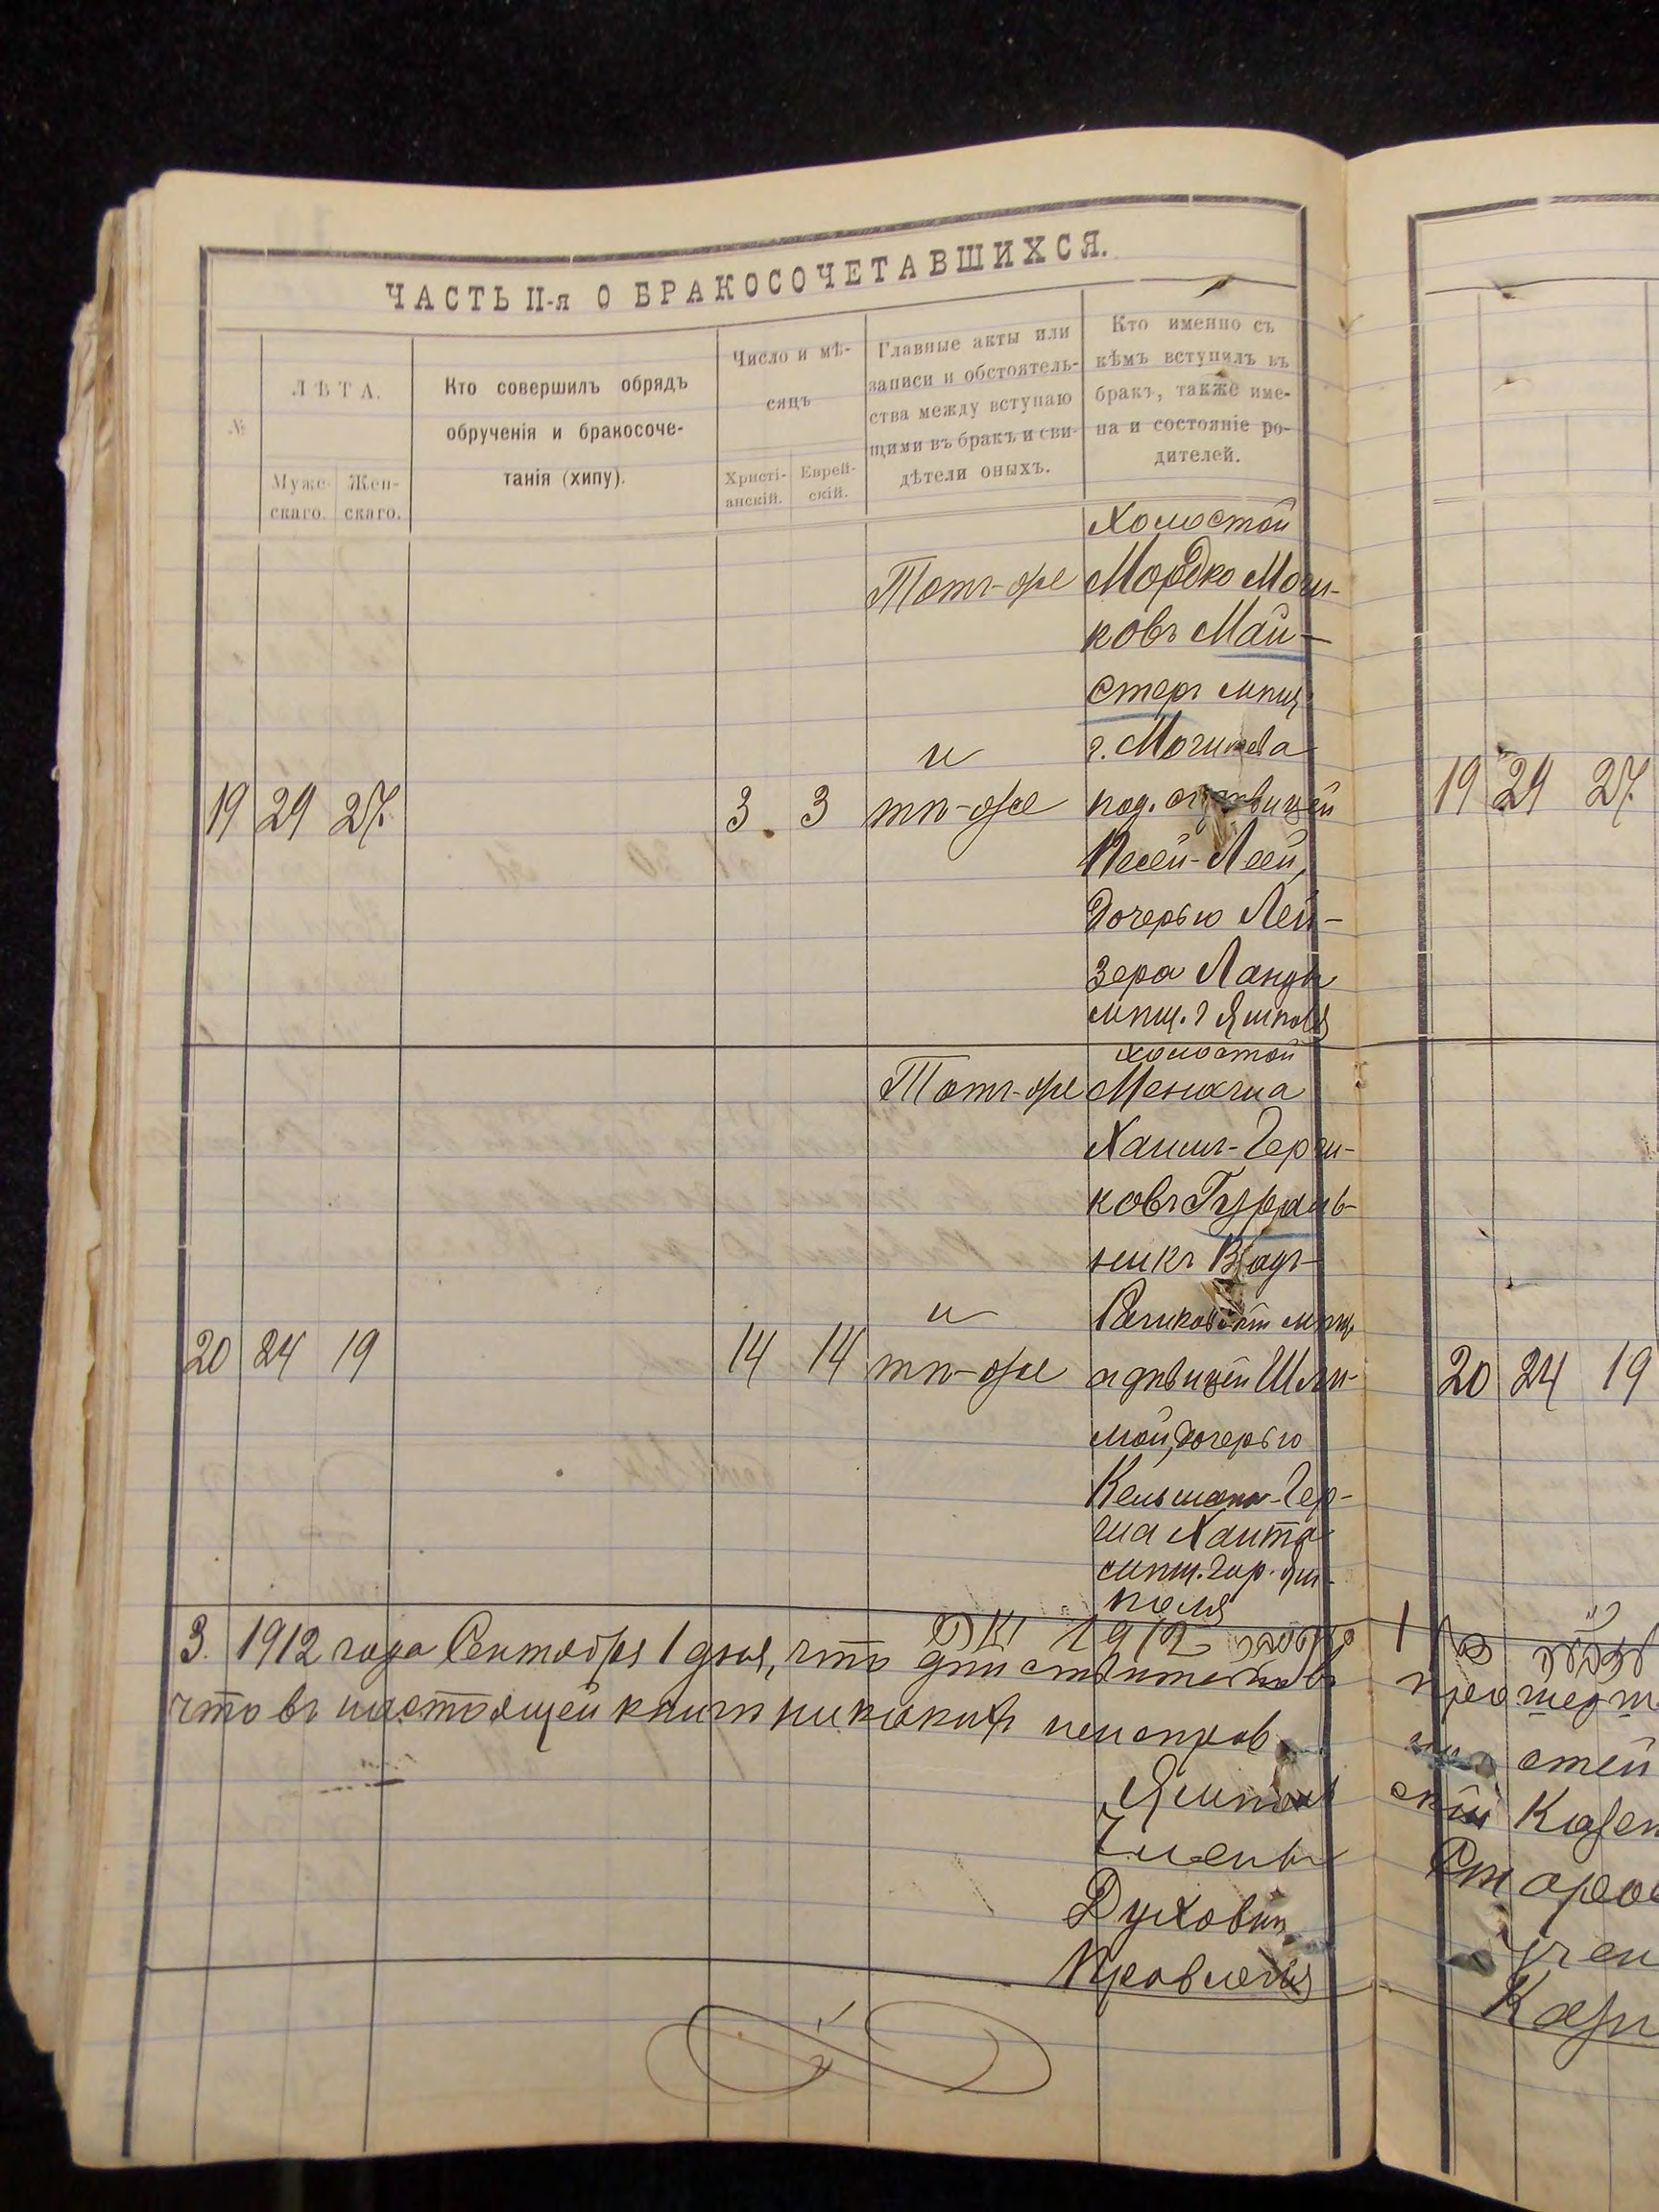 ЧАСТЬ II-я О БРАКОСОЧЕТАВШИХСЯ.
№
ЛѢТА.
Мужс-
скаго.
Жен-
скаго.
Кто совершилъ обрядъ
обрученія и бракосоче-
танія (хипу).
Число и мѣ-
сяцъ
Христі-
анскій.
Еврей-
скій.
Главные акты или
записи и обстоятель-
ства между вступаю
щими въ бракъ и сви-
дѣтели оныхъ.
Кто именно съ
кѣмъ вступилъ въ
бракъ, также име-
на и состояніе ро-
дителей.
19 29 27.
3. 3
Тотъ-же
и
тѣ-же
Холостой
Мордко Мош-
ковъ Май-
стеръ мѣщ.
г. Могилева
под. съ дѣвицей
Песей-Леей,
дочерью Лей-
зера Ланды
мѣщ. г Ямполя
20 24 19
14 14
Тотъ-же
и
тѣ-же
холостой
Менахма
Хаимъ-Герш-
ковъ Гураль-
никъ
мѣщ.
съ дѣвицей Шли-
мой, дочерью
Кельмана-Гер-
ша Хаита
мѣщ. гор. Ям-
поля
3. 1912 года Сентября 1 дня, что дѣйствительно въ
что въ настоящей книгѣ никакихъ неисправ
Ямполь
Члены
Духовн
Правленія
19 29 27.
20 24 19
прошедш
стей
скій Казен
Старос
учен